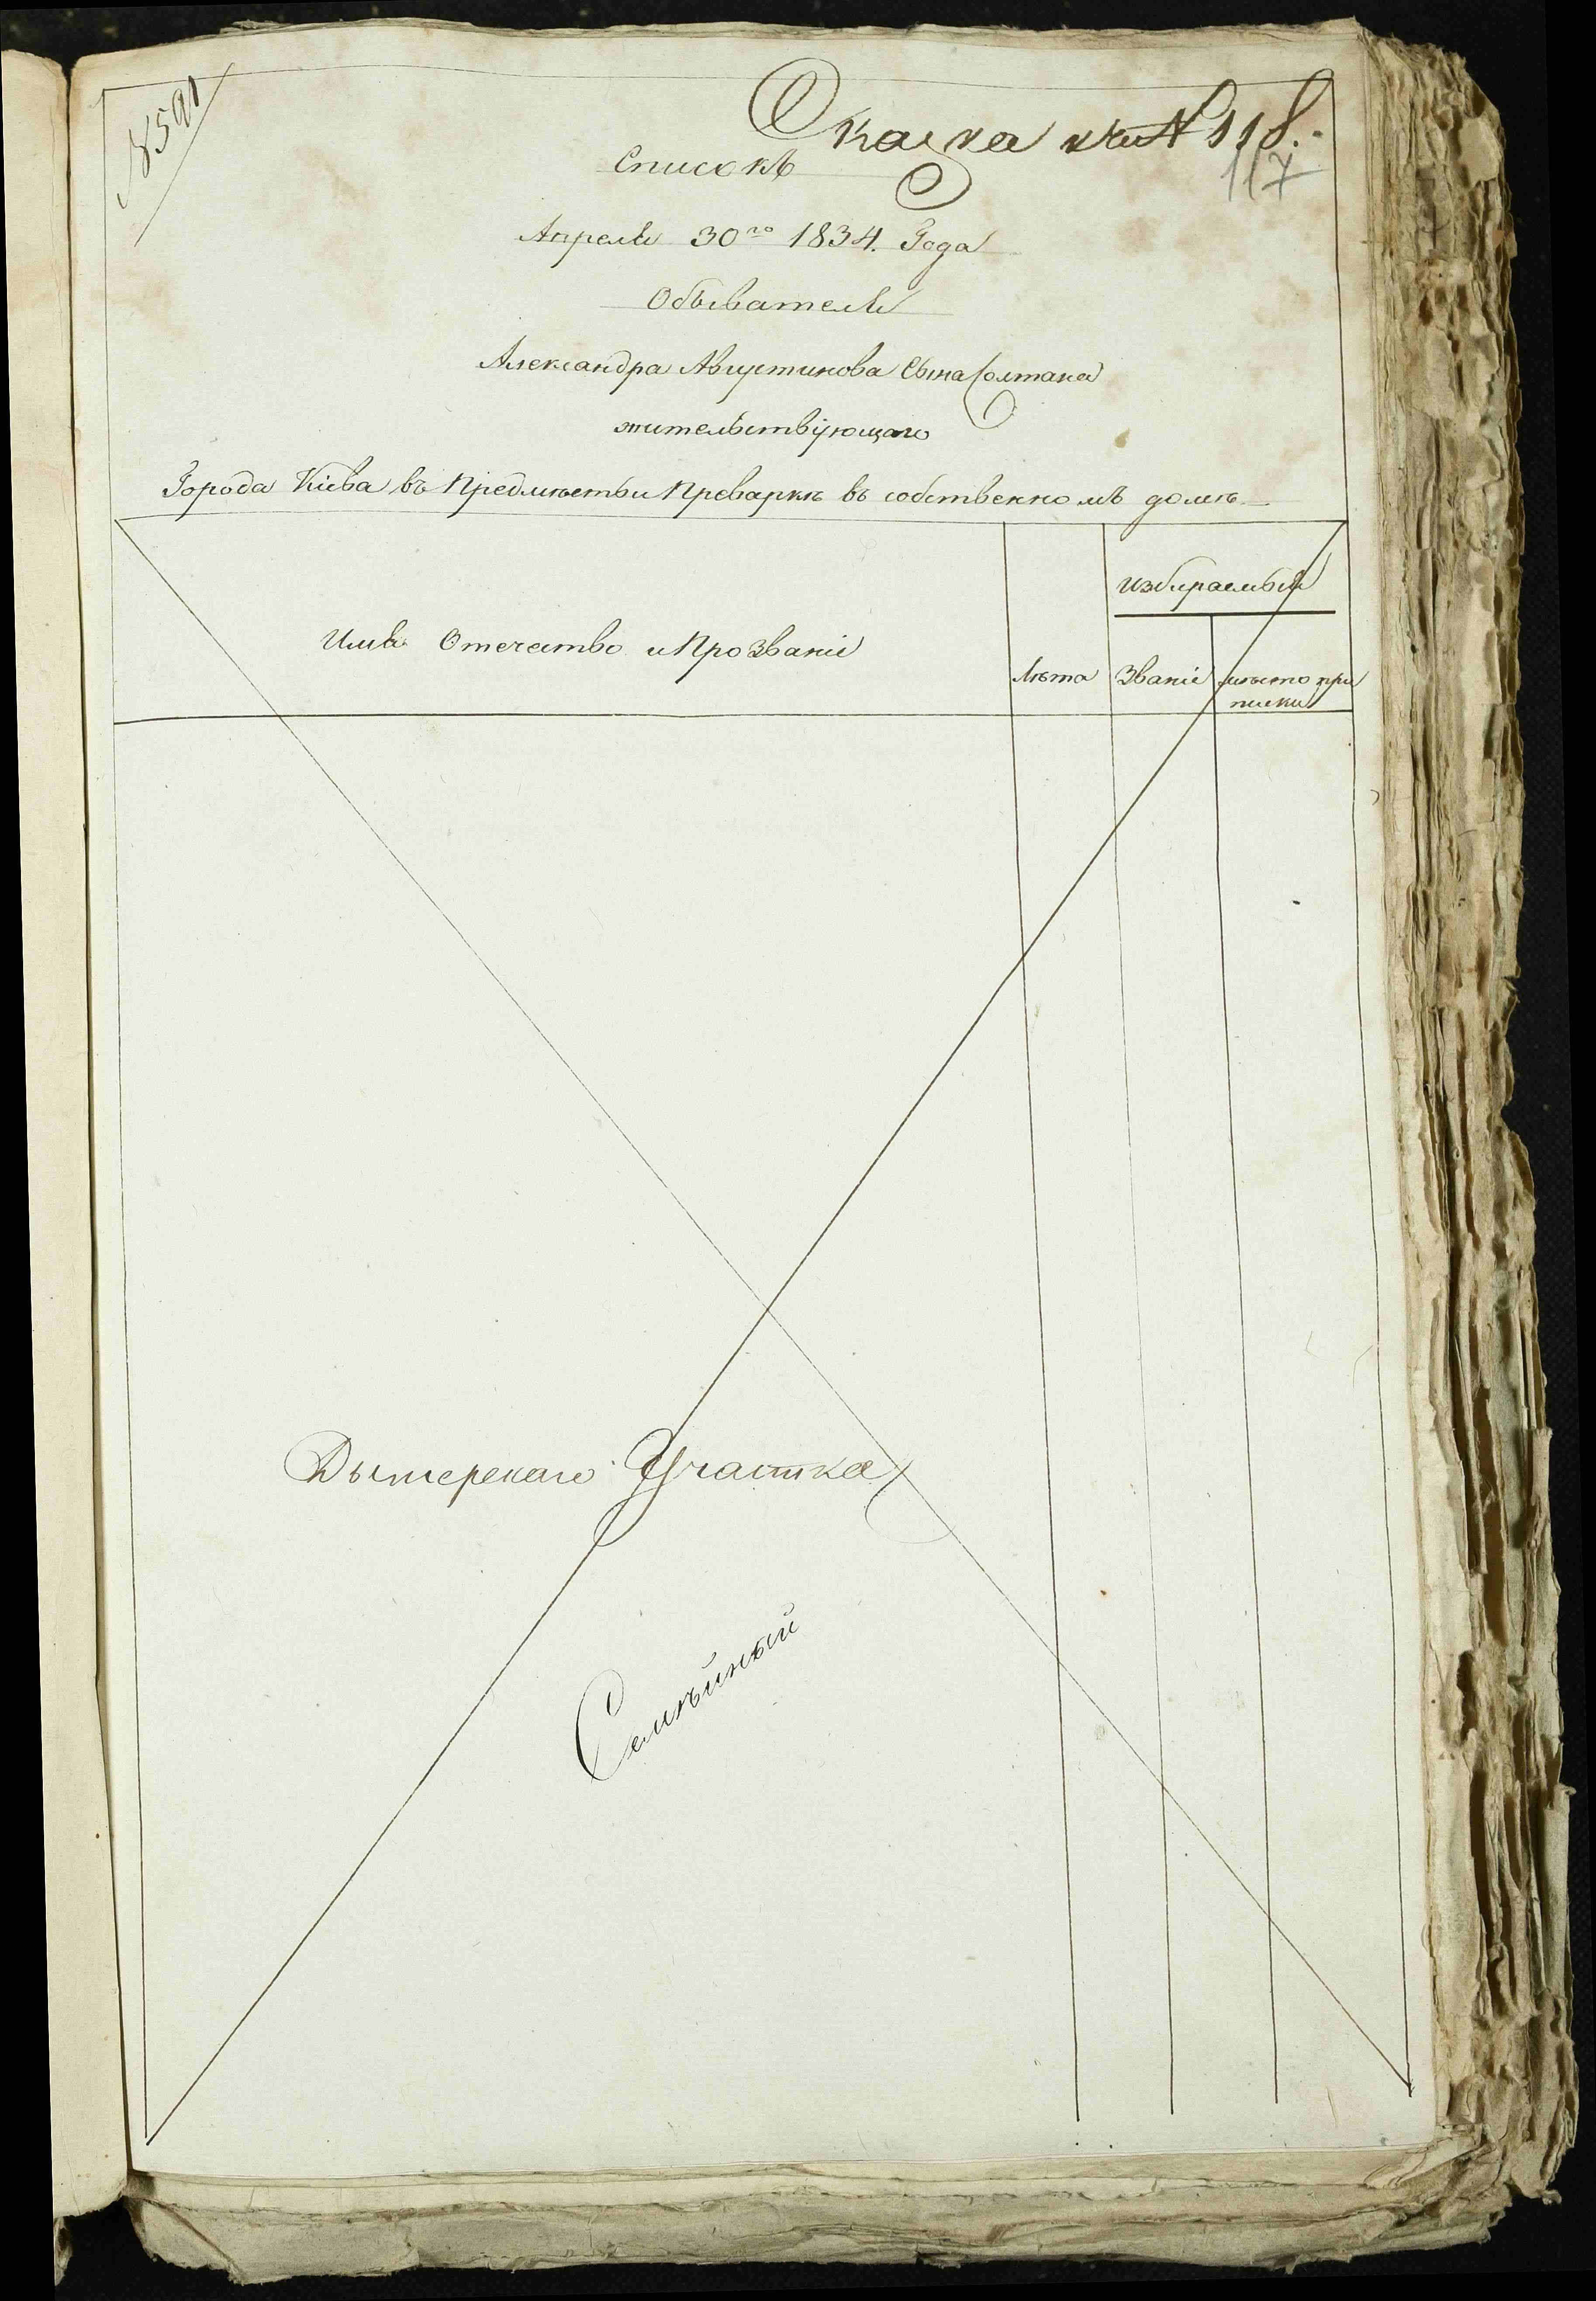 N 591
Сказка № 118.
117
Списокъ
Апреля 30го 1834. Года
Обывателя
Александра Августинова Сына Солтана
жительствующаго
Города Кіева въ Предмѣстьи Преваркѣ въ собственномъ домѣ
Имя Отечество и Прозваніе
Лѣта
избираемый
Званіе
мѣсто при
писки
Дымерскаго Участка
Семѣйный